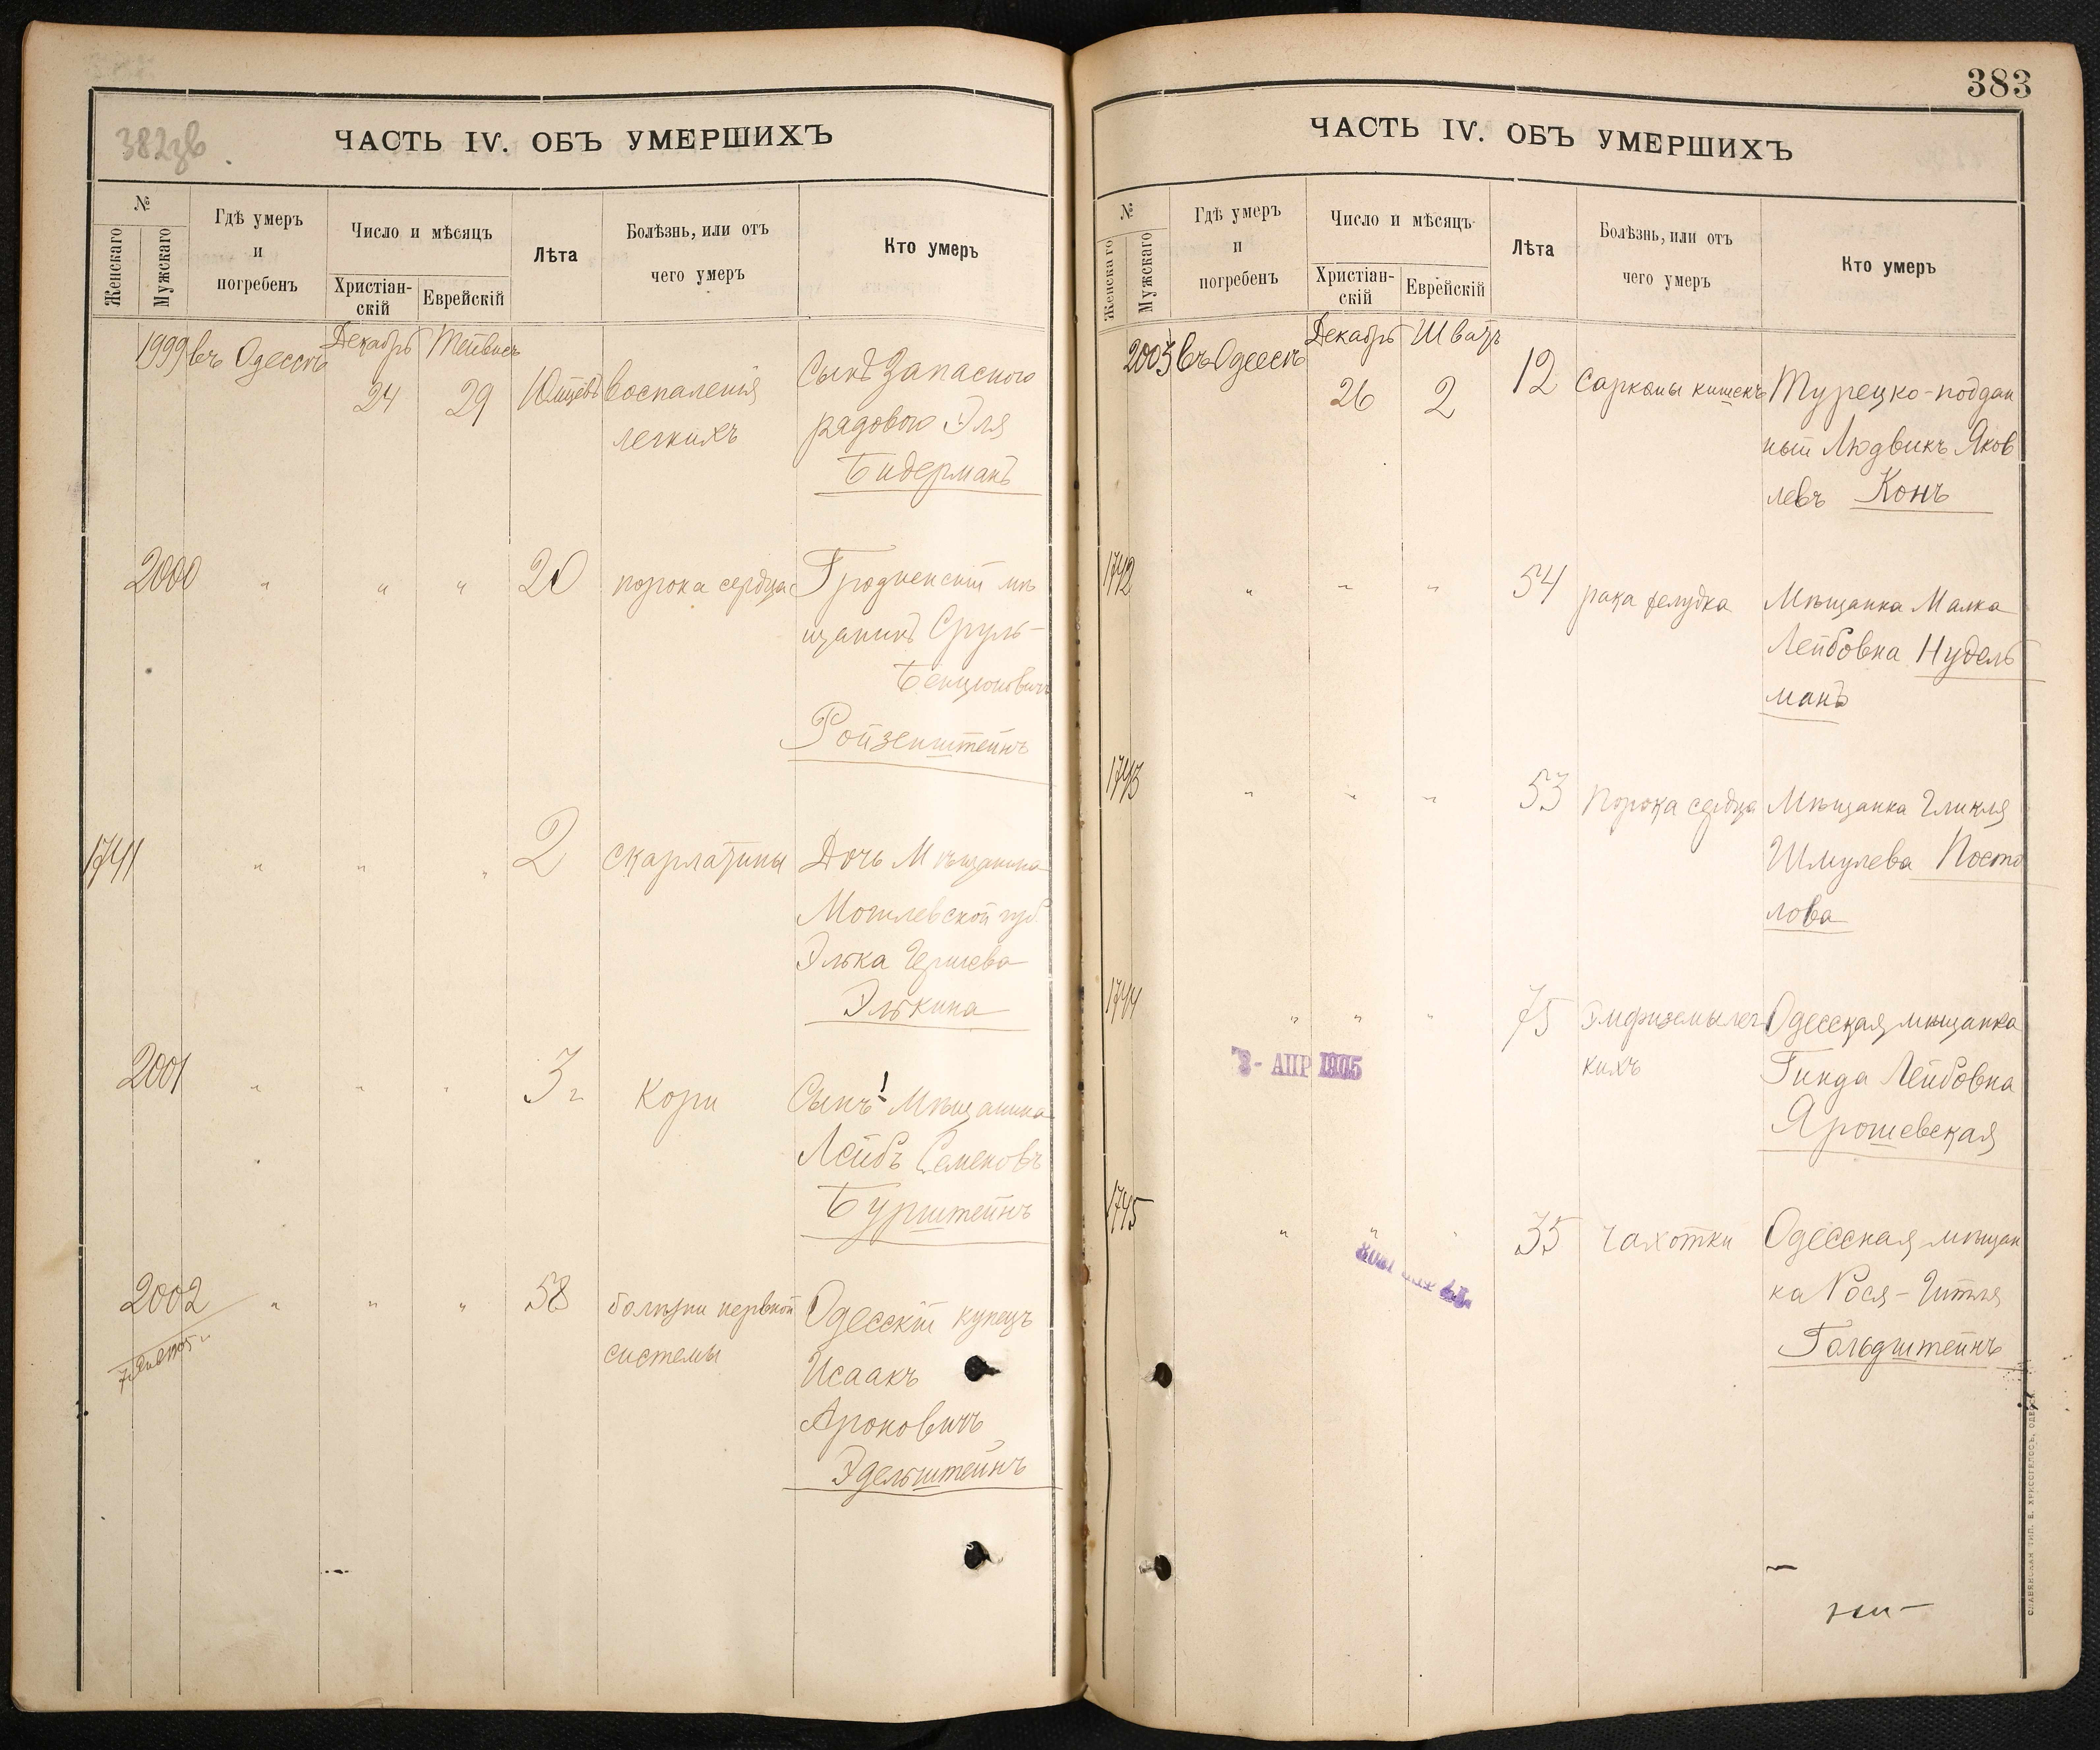 382зв.
ЧАСТЬ IV. ОБЪ УМЕРШИХЪ
№
Женскаго
Мужскаго
Гдѣ умеръ
и
погребенъ
Число и мѣсяцъ
Христіан-
скій
Еврейскій
Лѣта
Болѣзнь, или отъ
чего умеръ
Кто умеръ
1999 въ Одессѣ Декабрь Тейвисъ
24 29 воспаленія Сынъ Запасного
легкихъ рядового Эля
Бидерманъ
2000 " " " 20 порока сердца Гродненскій мѣ
щанинъ Сруль-
Бенціоновичъ
Ройзенштейнъ
1741 " " " 2 скарлатины Дочь Мѣщанина
Могилевской губ.
Элька Гершева
Элькина
2001 " " " 3 г кори Сынъ Мѣщанина
Лейбъ Семеновъ
Бурштейнъ
2002 " " " 58 болѣзни нервной Одесскій купецъ
системы Исаакъ
Ароновичъ
Эдельштейнъ
383
ЧАСТЬ IV. ОБЪ УМЕРШИХЪ
№
Женскаго
Мужскаго
Гдѣ умеръ
и
погребенъ
Число и мѣсяцъ
Христіан-
скій
Еврейскій
Лѣта
Болѣзнь, или отъ
чего умеръ
Кто умеръ
2003 въ Одессѣ Декабрь Шватъ
26 2 12 Саркомы кишекъ Турецко-поддан
ный Людвикъ Яков
левъ Конъ
1742 " " " 54 рака желудка Мѣщанка Малка
Лейбовна Нудель
манъ
1743 " " " 53 Порока сердца Мѣщанка Гликля
Шмулева Посто
лова
1744 " " " 75 Эмфиземы лег Одесская мѣщанка
кихъ Гинда Лейбовна
Ярошевская
- АПР 1905
1745 " " " 35 чахотки Одесская мѣщан
ка Рося-Гитля
Гольдштейнъ
СЛАВЯНСКАЯ ТИП. Е. ХРИСОГЕЛОСЪ, ОДЕССА